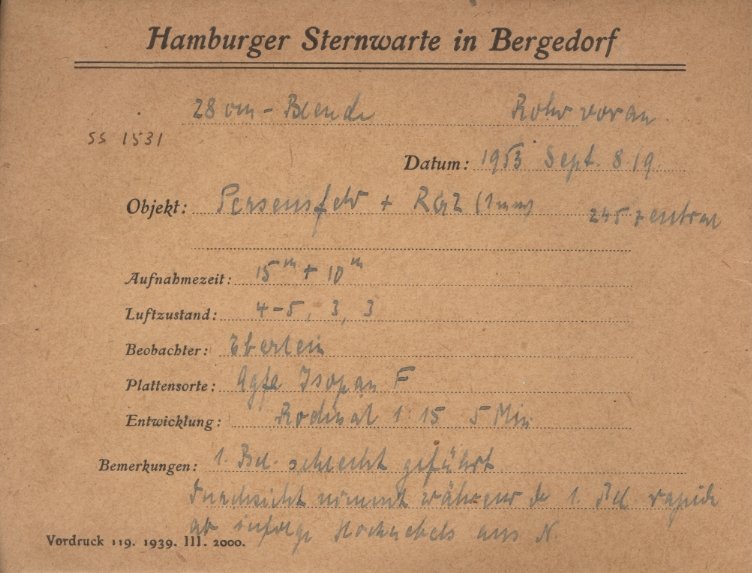 Hamburger Sternwarte in Bergedorf
28 cm-Blende Rohr voran
SS 1531
Datum: 1953 Sept. 8/9
Objekt: Perseusfeld + RGZ (1mm) 245 zentral
Aufnahmezeit: 15m + 10m
Luftzustand: 4-5, 3, 3
Beobachter: Eberlein
Plattensorte: Agfa Isopan F
Entwicklung: Rodinal 1:15 5 Min
Bemerkungen: 1. Bel. schlecht geführt
Durchsicht nimmt während der 1. Bel. rapide
ab infolge Hochnebels aus N.
Vordruck 119. 1939. III. 2000.